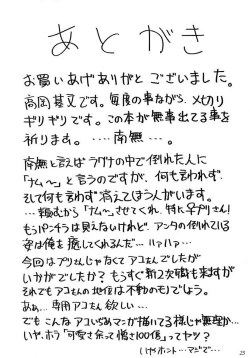 あとがき
お買いあげありがとうございました。
高岡基文です。毎度の事ながら、メ切り
ギリギリです。この本が無事出てる事を
祈ります。‥‥南無‥‥。
南無と言えばラグナの中で倒れた人に
「ナム〜」と言うのですが、何も言わず、
そして何も言わず消えてしまう人がいます。
…頼むから「ナム〜」させてくれ、特に♀プリさん!
もうパンチラは見えないけれど、アンタの倒れている
姿は俺を癒してくれるんだ…ハァハァ…
今回はプリさんじゃなくてアコさんでしたが
いかがでしたか?もうすぐ新2次職も来ますが
それでもアコさんの地位は不動のモノでしょう。
あぁ…専用アコさん欲しい…
でもこんなアコいぢめマンガ描いてる様じゃ無理か…
いや、ホラ「可愛さ余って憎さ100倍」ってヤツ?
いやホント…マジで…
25